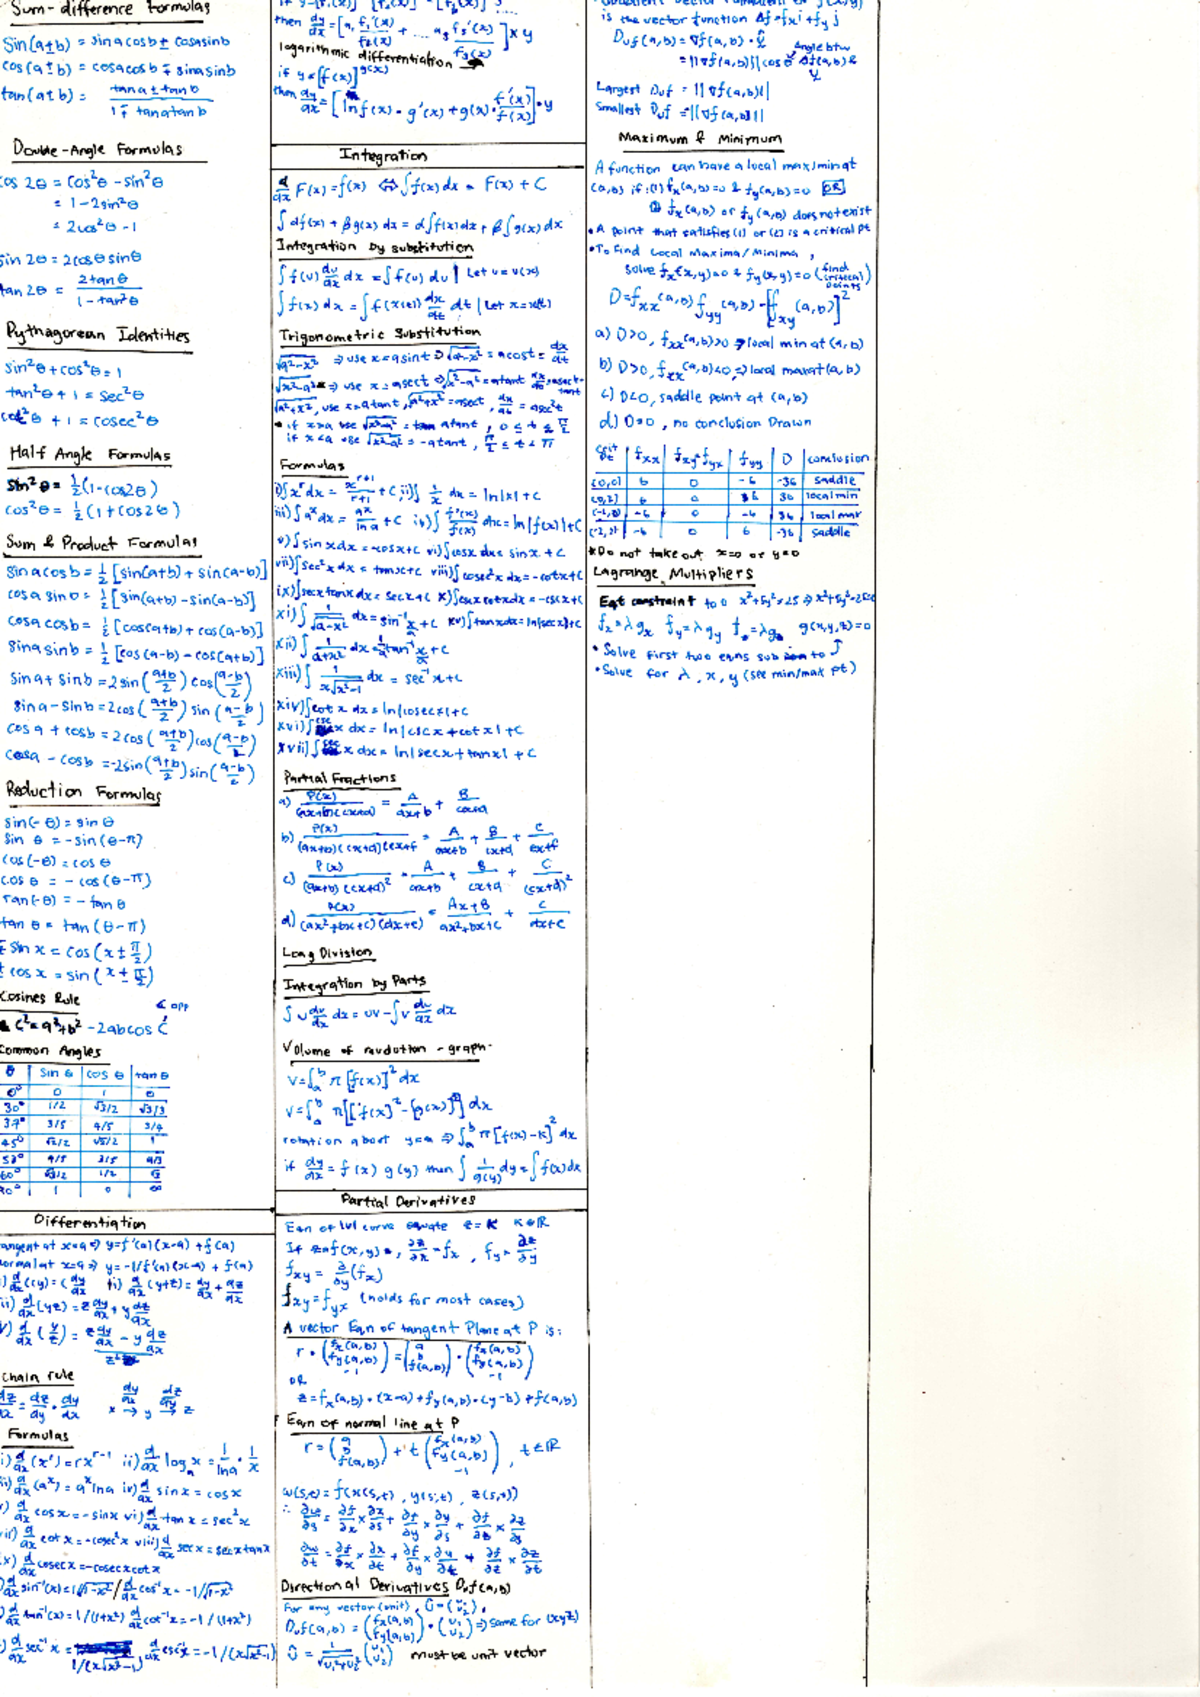 Sum-difference Formulas
Sin(a±b) = sinacosb ± cosasinb
cos(a±b) = cosacosb ∓ sinasinb
tan(a±b) = tana±tanb / 1∓tanatanb
Double-Angle Formulas
cos 2θ = cos²θ - sin²θ
= 1-2sin²θ
= 2cos²θ -1
sin 2θ = 2cosθ sinθ
tan 2θ = 2tanθ / 1-tan²θ
Pythagorean Identities
sin²θ + cos²θ = 1
tan²θ + 1 = sec²θ
cot²θ + 1 = cosec²θ
Half Angle Formulas
sin²θ = ½(1-cos2θ)
cos²θ = ½(1+cos2θ)
Sum & Product Formulas
sinacosb = ½[sin(a+b) + sin(a-b)]
cosasinb = ½[sin(a+b) - sin(a-b)]
cosacosb = ½[cos(a+b) + cos(a-b)]
sinasinb = ½[cos(a-b) - cos(a+b)]
sina + sinb = 2sin(a+b/2)cos(a-b/2)
sina - sinb = 2cos(a+b/2)sin(a-b/2)
cosa + cosb = 2cos(a+b/2)cos(a-b/2)
cosa - cosb = -2sin(a+b/2)sin(a-b/2)
Reduction Formulas
sin(-θ) = sinθ
sin θ = -sin(θ-π)
cos(-θ) = cosθ
cos θ = -cos(θ-π)
tan(-θ) = -tanθ
tan θ = tan(θ-π)
sin x = cos(x±π/2)
± cos x = sin(x±π/2)
Cosines Rule
∠ opp
c² = a²+b² - 2abcos C
Common Angles
θ sin θ cos θ tan θ
0° 0 1 0
30° 1/2 √3/2 √3/3
37° 3/5 4/5 3/4
45° √2/2 √2/2 1
53° 4/5 3/5 4/3
60° √3/2 1/2 √3
90° 1 0 ∞
Differentiation
tangent at x=a ⇒ y=f'(a)(x-a) + f(a)
normal at x=a ⇒ y=-1/f'(a)(x-a) + f(a)
i) d/dx (cy) = c dy/dx ii) d/dx (y+z) = dy/dx + dz/dx
iii) d/dx (yz) = z dy/dx + y dz/dx
iv) d/dx (y/z) = z dy/dx - y dz/dx / z²
chain rule
dz/dx = dz/dy · dy/dx x → y → z
Formulas
i) d/dx (xʳ) = rxʳ⁻¹ ii) d/dx logₐx = 1/lna · 1/x
iii) d/dx (aˣ) = aˣ lna iv) d/dx sinx = cosx
v) d/dx cosx = -sinx vi) d/dx tanx = sec²x
vii) d/dx cotx = -cosec²x viii) d/dx secx = secxtanx
ix) d/dx cosecx = -cosecxcotx
d/dx sin⁻¹(x) = 1/√1-x² / d/dx cos⁻¹x = -1/√1-x²
d/dx tan⁻¹(x) = 1/(1+x²) d/dx cot⁻¹x = -1/(1+x²)
d/dx sec⁻¹x = 1/(x√x²-1) d/dx csc⁻¹x = -1/(x√x²-1)
then dy/dx = [a₁ f₁'(x)/f₁(x) + ... a₃ f₃'(x)/f₃(x)] × y
logarithmic differentiation →
if y = [f(x)]^g(x)
then dy/dx = [ln f(x) · g'(x) + g(x) · f'(x)/f(x)] · y
Integration
d/dx F(x) = f(x) ⇔ ∫f(x)dx = F(x) + C
∫ αf(x) + βg(x) dx = α∫f(x)dx + β∫g(x)dx
Integration by substitution
∫ f(u) du/dx dx = ∫f(u) du | Let u=u(x)
∫ f(x) dx = ∫ f(x(t)) dx/dt dt | Let x=x(t)
Trigonometric Substitution
√a²-x² ⇒ use x=asint ⇒ √a²-x² = acost = dx/dt
√x²-a² ⇒ use x=asect ⇒ √x²-a² = atant dx/dt=asect·tant
√a²+x², use x=atant, √a²+x² = asect, dx/dt = asec²t
• if x>a use √x²-a² = atant, 0≤t≤π/2
if x<a use √x²-a² = -atant, π/2≤t≤π
Formulas
i) ∫xʳdx = xʳ⁺¹/r+1 + C ii) ∫1/x dx = ln|x| + C
iii) ∫aˣdx = aˣ/lna + C iv) ∫f'(x)/f(x) dx = ln|f(x)| + C
v) ∫sinxdx = -cosx+C vi) ∫cosx dx = sinx + C
vii) ∫sec²x dx = tanx+C viii) ∫cosec²x dx = -cotx+C
ix) ∫secxtanx dx = secx+C x) ∫cscxcotxdx = -cscx+C
xi) ∫1/√a²-x² dx = sin⁻¹x/a + C xv) ∫tanxdx = ln|secx|+C
xii) ∫1/a²+x² dx = 1/a tan⁻¹x/a + C
xiii) ∫1/x√x²-1 dx = sec⁻¹x + C
xiv) ∫cot x dx = ln|cosecx| + C
xvi) ∫csc x dx = ln|cscx + cotx| + C
xvii) ∫sec x dx = ln|secx + tanx| + C
Partial Fractions
a) P(x)/(ax+b)(cx+d) = A/ax+b + B/cx+d
b) P(x)/(ax+b)(cx+d)(ex+f) = A/ax+b + B/cx+d + C/ex+f
c) P(x)/(ax+b)(cx+d)² = A/ax+b + B/cx+d + C/(cx+d)²
d) P(x)/(ax²+bx+c)(dx+e) = Ax+B/ax²+bx+c + C/dx+e
Long Division
Integration by Parts
∫u dv/dx dx = uv - ∫v du/dx dx
Volume of revolution - graph-
V=∫ₐᵇ π[f(x)]² dx
V=∫ₐᵇ π[[f(x)]² - [g(x)]²] dx
rotation about y=a ⇒ ∫ₐᵇ π[f(x)-k]² dx
if dy/dx = f(x) g(y) then ∫1/g(y) dy = ∫f(x)dx
Partial Derivatives
Eqn of lvl curve equate z=K K∈ℝ
If z=f(x,y), ∂z/∂x = fx, fy = ∂z/∂y
fxy = ∂/∂y (fx)
fxy = fyx (holds for most cases)
A vector Eqn of tangent Plane at P is:
r · (fx(a,b) fy(a,b) -1) = (a b f(a,b)) · (fx(a,b) fy(a,b) -1)
OR
z = fx(a,b)·(x-a) + fy(a,b)·(y-b) + f(a,b)
Eqn of normal line at P
r = (a b f(a,b)) + t (fx(a,b) fy(a,b) -1), t∈ℝ
w(s,t) = f(x(s,t), y(s,t), z(s,t))
∴ ∂w/∂s = ∂f/∂x × ∂x/∂s + ∂f/∂y × ∂y/∂s + ∂f/∂z × ∂z/∂s
∂w/∂t = ∂f/∂x × ∂x/∂t + ∂f/∂y × ∂y/∂t + ∂f/∂z × ∂z/∂t
Directional Derivatives Duf(a,b)
For any vector (unit), û = (u₁ u₂),
Duf(a,b) = (fx(a,b) fy(a,b)) · (u₁ u₂) ⇒ same for (xyz)
û = 1/√u₁²+u₂² (u₁ u₂) must be unit vector
is the vector function ∆f = fxi + fyj
Duf(a,b) = ∇f(a,b) · û
= ||∇f(a,b)|| cos θ angle btw ∆f(a,b) & u
Largest Duf = ||∇f(a,b)||
Smallest Duf = -||∇f(a,b)||
Maximum & Minimum
A function can have a local max/min at
(a,b) if: (1) fx(a,b)=0 & fy(a,b)=0 OR
(2) fx(a,b) or fy(a,b) does not exist
• A point that satisfies (1) or (2) is a critical pt
• To Find Local Maxima/Minima,
solve fx(x,y)=0 & fy(x,y)=0 (find critical points)
D = fxx(a,b) fyy(a,b) - [fxy(a,b)]²
a) D>0, fxx(a,b)>0 ⇒ local min at (a,b)
b) D>0, fxx(a,b)<0, ⇒ local max at (a,b)
c) D<0, saddle point at (a,b)
d) D=0, no conclusion Drawn
Crit pt fxx fxy=fyx fyy D conclusion
(0,0) 6 0 -6 -36 saddle
(0,2) 6 0 6 36 local min
(-2,0) -6 0 -6 36 local max
(-2,2) -6 0 6 -36 saddle
*Do not take out x=0 or y=0
Lagrange Multipliers
Eqt constraint to 0 x²+5y²=25 ⇒ x²+5y²-25=0
fx=λgx fy=λgy fz=λgz g(x,y,z)=0
• Solve first two eqns sub to
• Solve for λ, x, y (see min/max pt)